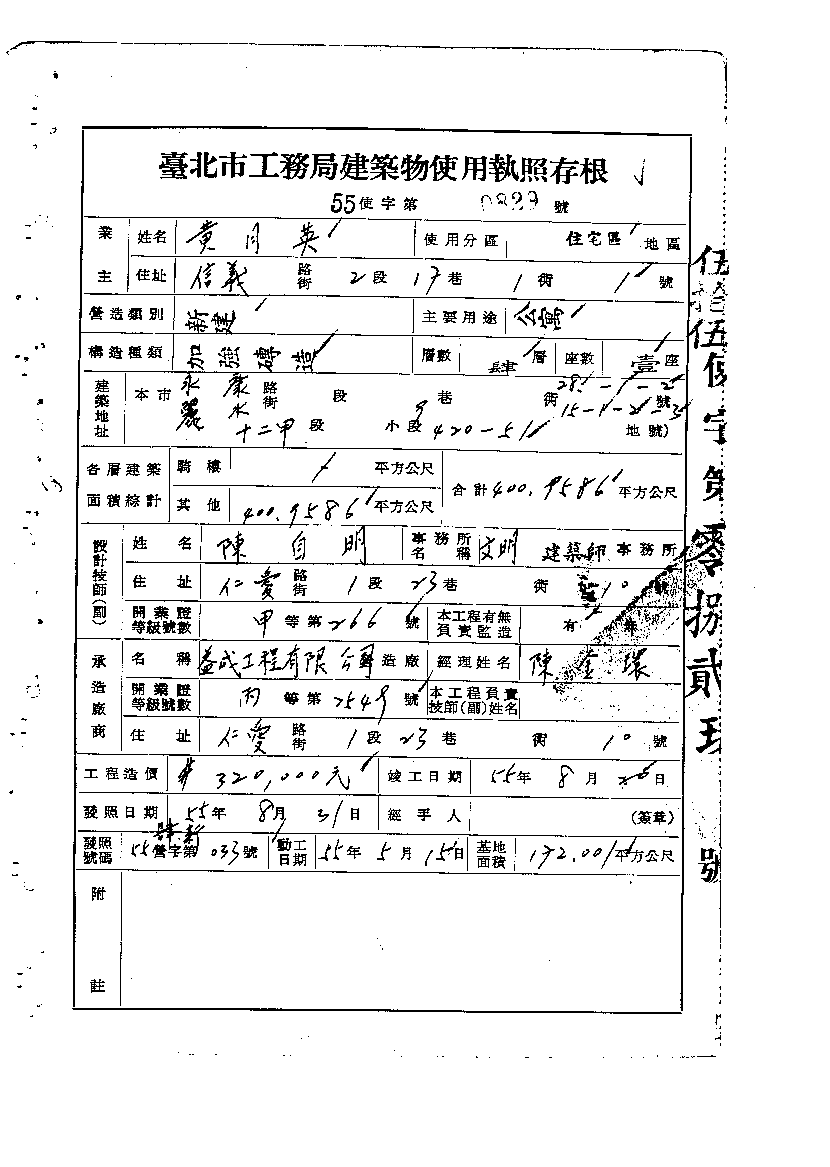 臺北市工務局建築物使用執照存根
55使字第 0829 號
業主 姓名 黃月英 使用分區 住宅區 地區
住址 信義 路街 2段 17巷 1街 1號
營造類別 新建 主要用途 公寓
構造種類 加強磚造 層數 肆層 座數 壹座
建築地址 本市 永康 路街 段 巷 街 號
麗水 十二甲段 小段 420-51 地號)
各層建築面積綜計 騎樓 平方公尺 合計400.9586平方公尺
其他 400.9586平方公尺
設計技師(副) 姓名 陳自明 事務所名稱 文明 建築師事務所
住址 仁愛 路街 1段 23巷 街 10號
開業證等級號數 甲等第266號 本工程有無負責監造 有
承造廠商 名稱 益成工程有限公司 造廠 經理姓名 陳金環
開業證等級號數 丙等第2549號 本工程負責技師(副)姓名
住址 仁愛 路街 1段 23巷 街 10號
工程造價 320,000元 竣工日期 55年8月 日
發照日期 55年8月31日 經手人 (簽章)
發照號碼 55營字第033號 動工日期 55年5月15日 基地面積 172.00平方公尺
附註
伍拾伍使字第零捌貳玖號